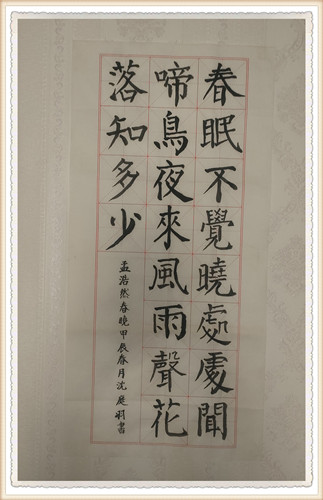 春眠不覺曉處處聞
啼鳥夜來風雨聲花
落知多少
孟浩然春曉甲辰春月沈庭羽書